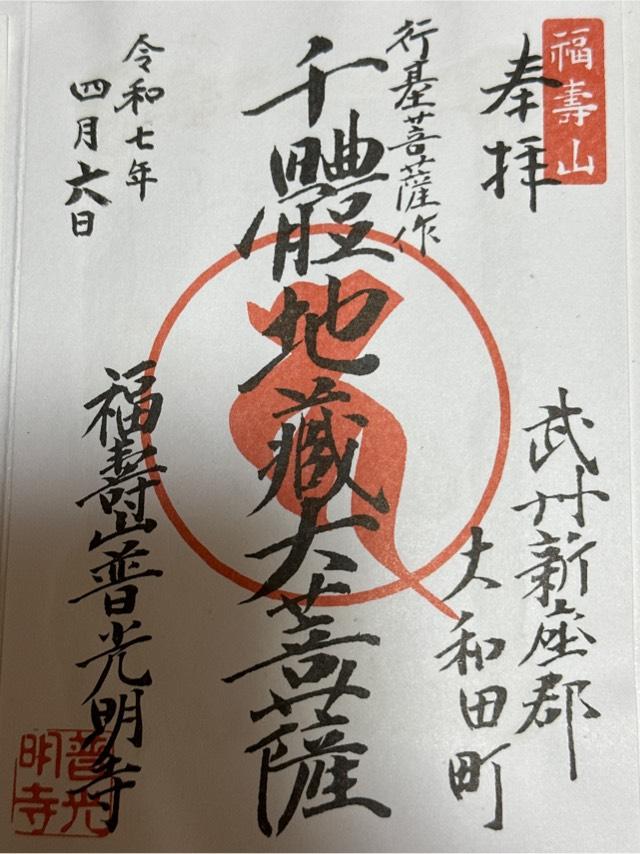 福壽山
奉拝
武州新座郡
大和田町
行基菩薩作
千體地藏大菩薩
令和七年
四月六日
福壽山普光明寺
普光明寺